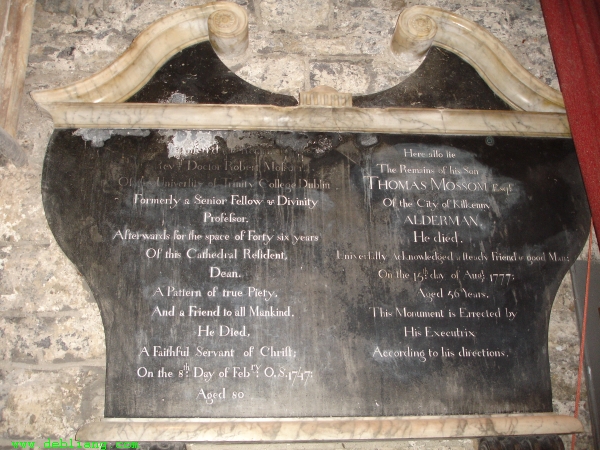 Rev.d Doctor Robert Mossom
Of the University of Trinity College Dublin
Formerly a Senior Fellow & Divinity
Profeſsor,
Afterwards for the space of Forty six years
Of this Cathedral Reſident,
Dean.
A Pattern of true Piety,
And a Friend to all Mankind,
He Died,
A Faithful Servant of Chriſt;
On the 8th. Day of Febry. O.S. 1747:
Aged 80
Here also lie
The Remains of his Son
THOMAS MOSSOM Esqr
Of the City of Kilkenny
ALDERMAN
He died,
Univerſally Acknowledged a Ready Friend & good Man;
On the 15th. day of Augt. 1777:
Aged 56 Years.
This Monument is Errected by
His Executrix
According to his directions.
www.debliang.com